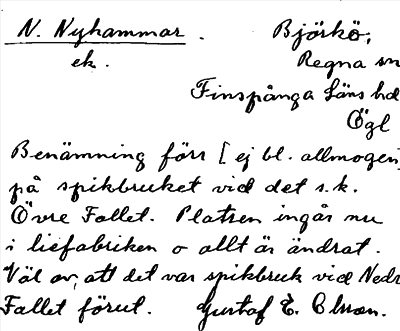 N. Nyhammar. Björkö,
ek. Regna sn
Finspånga läns hd
Ögl
Benämning förr [ej bl. allmogen]
på spikbruket vid det s.k.
Övre Fallet. Platsen ingår nu
i liefabriken o allt är ändrat.
Väl av, att det var spikbruk vid Nedr
Fallet förut. Gustaf E. Olsson.